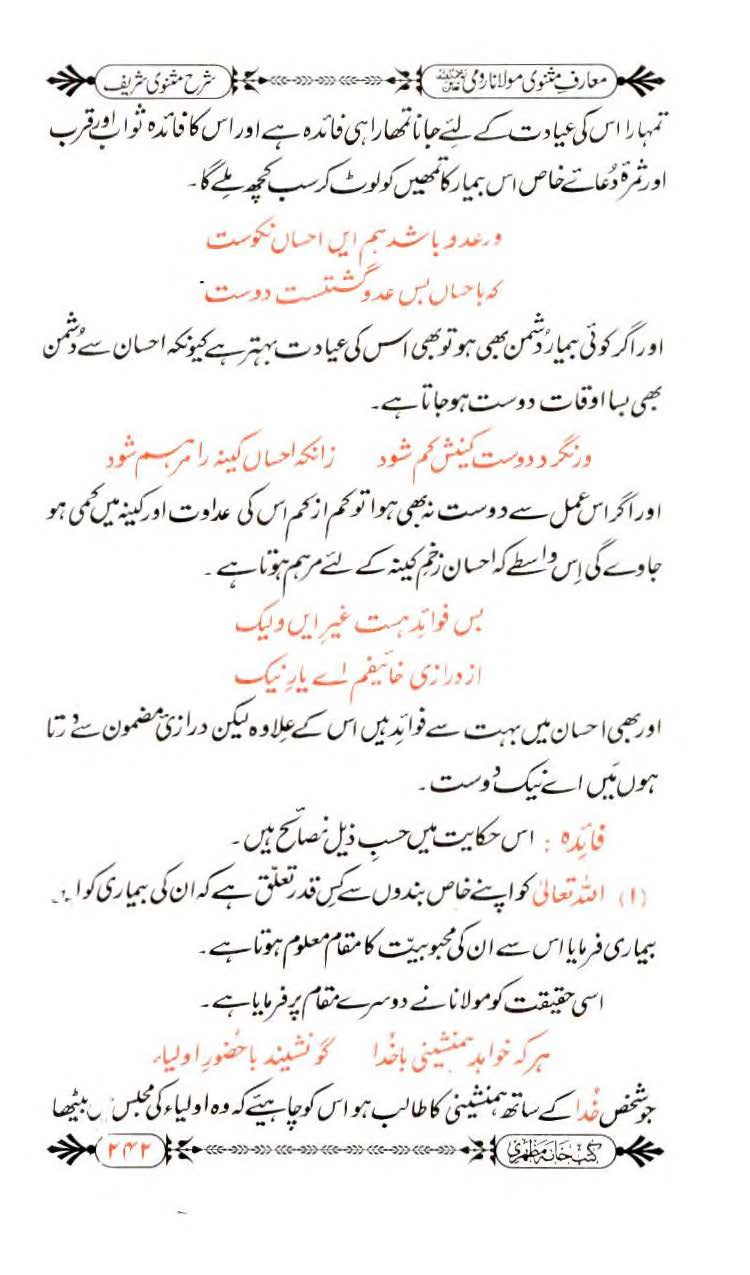 معارفِ مثنوی مولانا رومی رحمۃ اللہ علیہ شرح مثنوی شریف
تمہارا اس کی عیادت کے لئے جانا تمہارا ہی فائدہ ہے اور اس کا فائدہ ثواب اور قرب
اور ثمرۂ دُعائے خاص اس بیمار کا تمھیں کو لوٹ کر سب کچھ ملے گا۔
ور عدو باشد ہم ایں احساں نکوست
کہ باحساں بس عدو گشتست دوست
اور اگر کوئی بیمار دُشمن بھی ہو تو بھی اس کی عیادت بہتر ہے کیونکہ احسان سے دُشمن
بھی بسا اوقات دوست ہو جاتا ہے۔
ور نگردد دوست کینش کم شود زانکہ احساں کینہ را مرہم شود
اور اگر اس عمل سے دوست نہ بھی ہوا تو کم از کم اس کی عداوت اور کینہ میں کمی ہو
جاوے گی اِس واسطے کہ احسان زخمِ کینہ کے لئے مرہم ہوتا ہے۔
بس فوائد ہست غیرِ ایں ولیک
از درازی خائیفم اے یارِ نیک
اور بھی احسان میں بہت سے فوائد ہیں اس کے علاوہ لیکن درازیٔ مضمون سے ڈرتا
ہوں مَیں اے نیک دوست۔
فائدہ : اس حکایت میں حسبِ ذیل نصائح ہیں۔
(۱) اللہ تعالیٰ کو اپنے خاص بندوں سے کِس قدر تعلّق ہے کہ ان کی بیماری کو
بیماری فرمایا اس سے ان کی محبوبیّت کا مقام معلوم ہوتا ہے۔
اسی حقیقت کو مولانا نے دوسرے مقام پر فرمایا ہے۔
ہر کہ خواہد ہمنشینی با خُدا گو نشیند با حُضورِ اولیاء
جو شخص خُدا کے ساتھ ہمنشینی کا طالب ہو اس کو چاہیئے کہ وہ اولیاء کی مجلس بیٹھا
کتب خانہ مظہری ۲۴۲